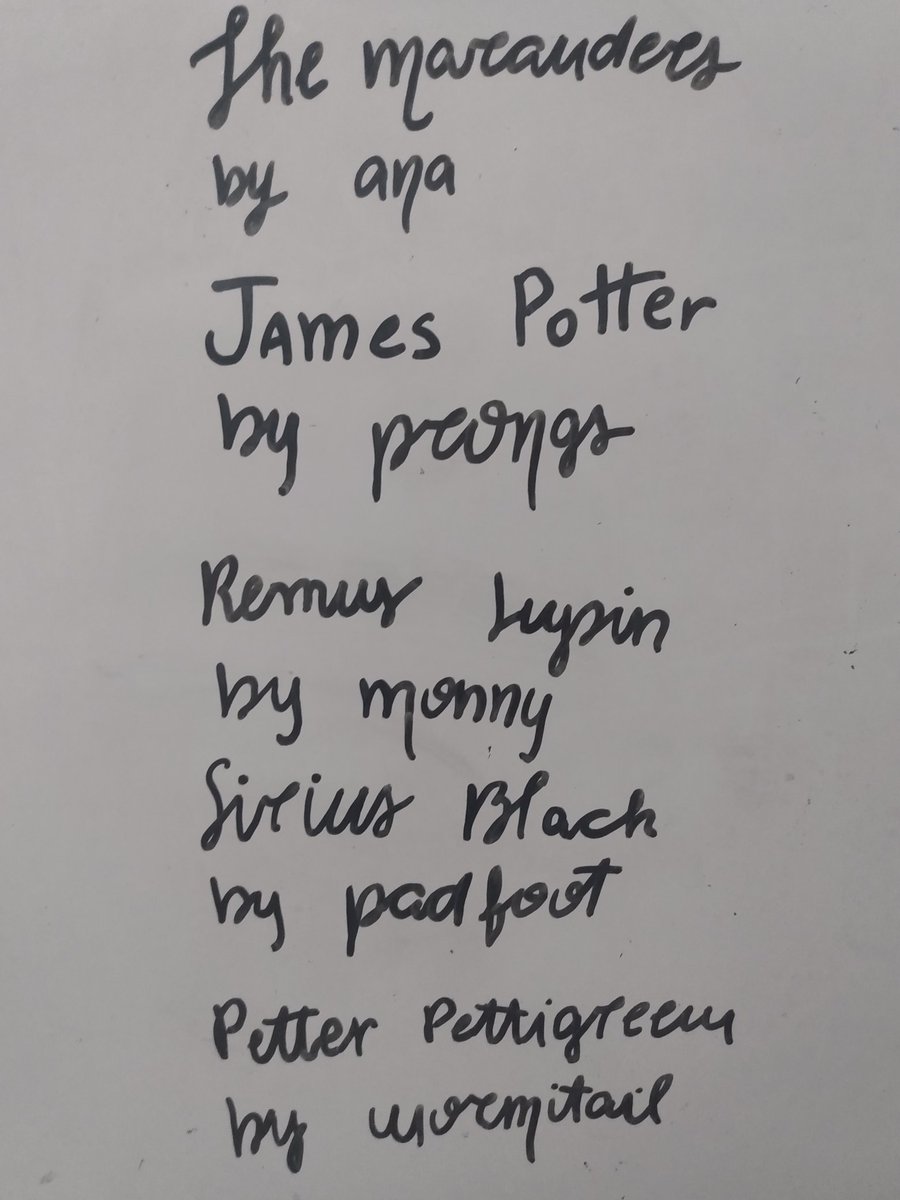 The marauders
by ana
James Potter
by prongs
Remus Lupin
by monny
Sirius Black
by padfoot
Petter Pettigreew
by wormitail